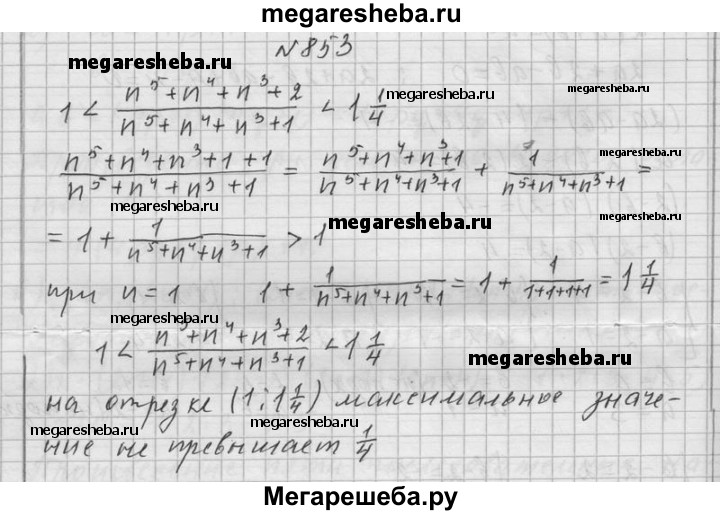 megaresheba.ru
N 853
megaresheba.ru
1 < (n^5+n^4+n^3+2)/(n^5+n^4+n^3+1) < 1 1/4
megaresheba.ru
(n^5+n^4+n^3+1+1)/(n^5+n^4+n^3+1) = (n^5+n^4+n^3+1)/(n^5+n^4+n^3+1) + 1/(n^5+n^4+n^3+1) =
megaresheba.ru
megaresheba.ru
= 1 + 1/(n^5+n^4+n^3+1) > 1
megaresheba.ru
megaresheba.ru
при n = 1 1 + 1/(n^5+n^4+n^3+1) = 1 + 1/(1+1+1+1) = 1 1/4
megaresheba.ru
1 < (n^5+n^4+n^3+2)/(n^5+n^4+n^3+1) < 1 1/4
megaresheba.ru
на отрезке (1; 1 1/4) максимальное значе-
megaresheba.ru
megaresheba.ru
ние не превышает 1/4
Мегарешеба.ру